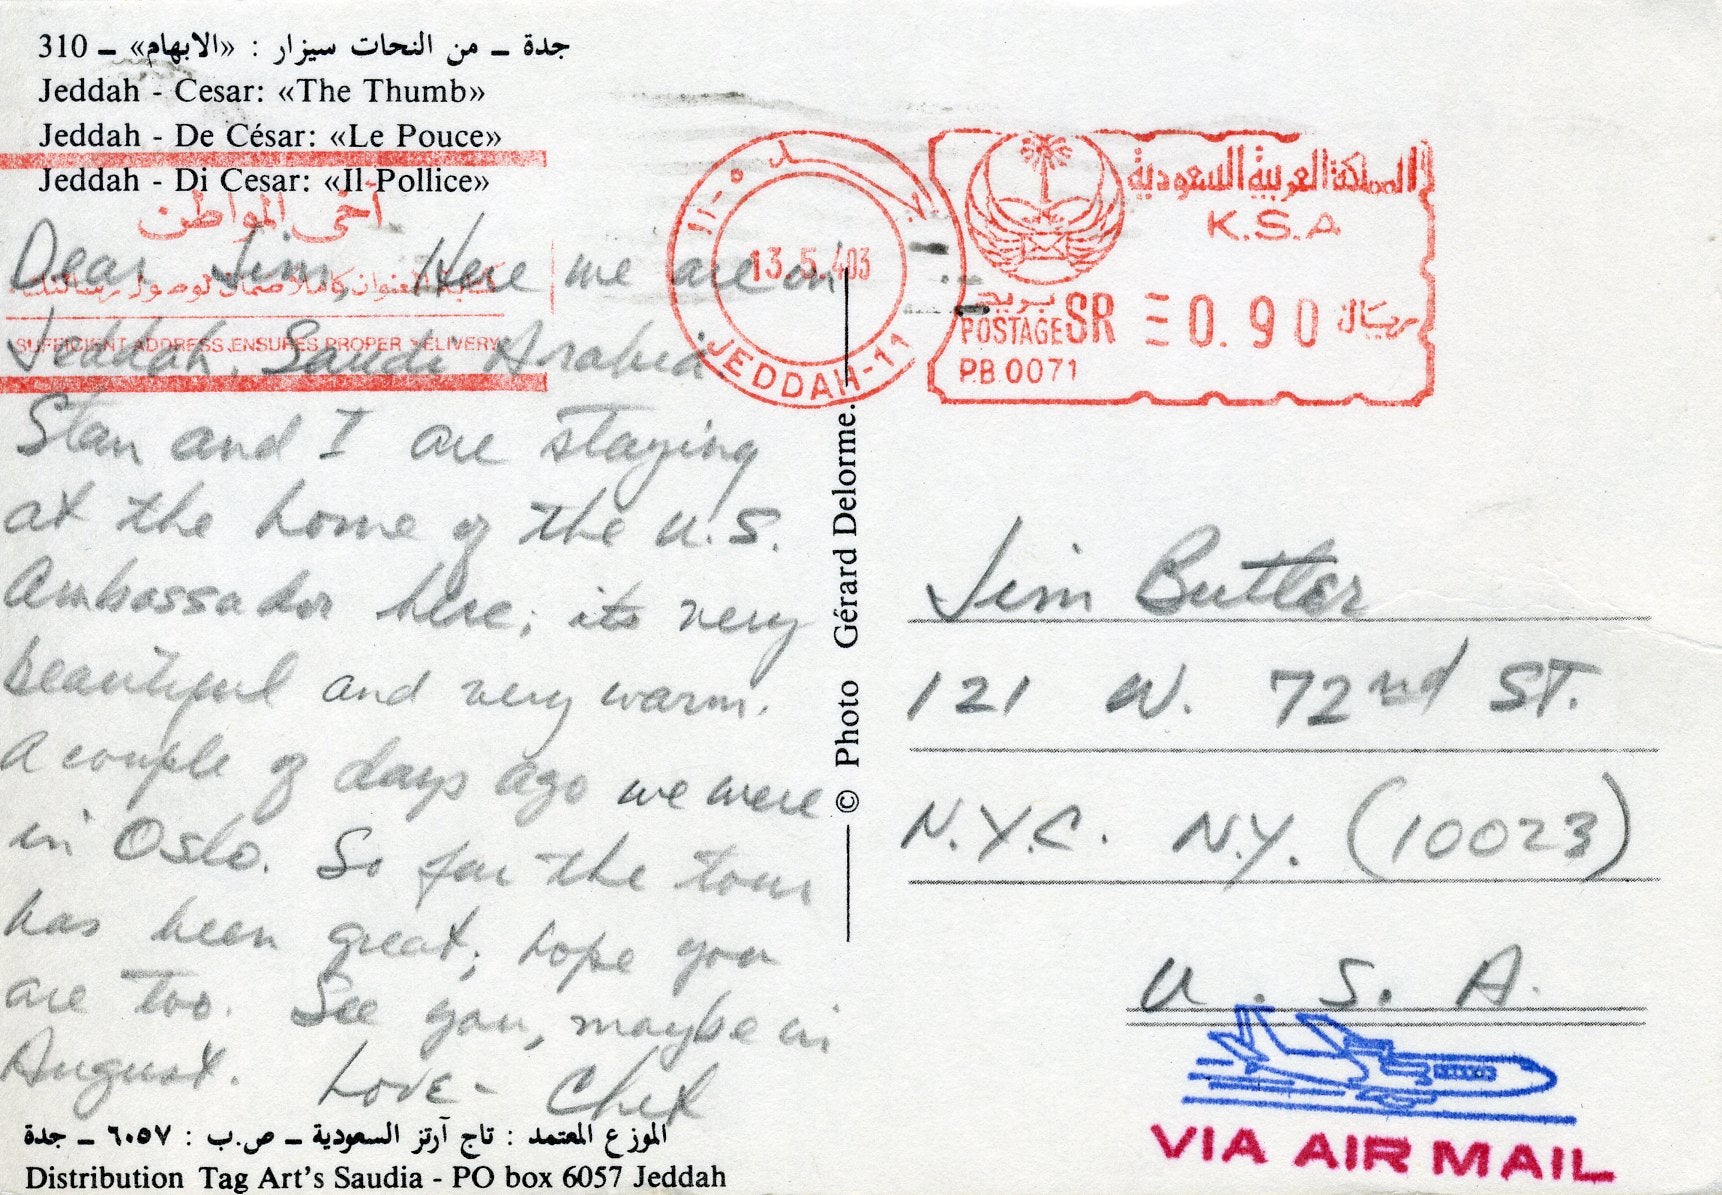 جدة ـ من النحات سيزار : «الابهام» ـ 310
Jeddah - Cesar: «The Thumb»
Jeddah - De César: «Le Pouce»
Jeddah - Di Cesar: «Il Pollice»
أخي المواطن
كتابة العنوان كاملا ضمان لوصول رسالتك
SUFFICIENT ADDRESS ENSURES PROPER DELIVERY
Dear Jim, Here we are in
Jeddah, Saudi Arabia
Stan and I are staying
at the home of the U.S.
Ambassador here; its very
beautiful and very warm.
A couple of days ago we were
in Oslo. So far the tour
has been great; hope you
are too. See you, maybe in
August. Love - Chet
الموزع المعتمد : تاج آرتز السعودية ـ ص.ب : ٦٠٥٧ ـ جدة
Distribution Tag Art's Saudia - PO box 6057 Jeddah
© Photo Gérard Delorme.
13.5.403
JEDDAH-11
المملكة العربية السعودية
K.S.A
بريد
POSTAGE SR 0.90 ريال
P.B.0071
Jim Butler
121 W. 72nd ST.
N.Y.C. N.Y. (10023)
U.S.A.
VIA AIR MAIL